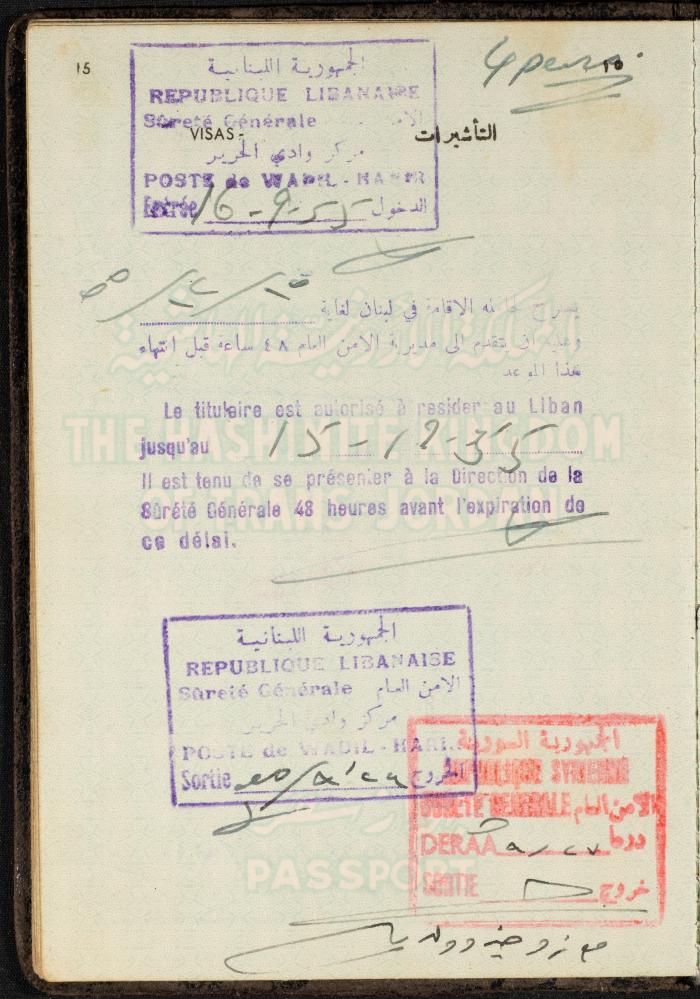 15
4 pers.
١٥
الجمهورية اللبنانية
REPUBLIQUE LIBANAISE
Sûreté Générale الامن
VISAS - التأشيرات
مركز وادي الحرير
POSTE de WADIL - HARIR
Entrée 16-9-55 الدخول
٥٥/١٢/١٥
يصرح لحامله الاقامة في لبنان لغاية
وعليه ان يتقدم الى مديرية الامن العام ٤٨ ساعة قبل انتهاء
هذا الموعد
Le titulaire est autorisé à resider au Liban
jusqu'au 15-12-55
Il est tenu de se présenter à la Direction de la
Sûrété Générale 48 heures avant l'expiration de
ce délai.
THE HASHIMITE KINGDOM
OF TRANS-JORDAN
الجمهورية اللبنانية
REPUBLIQUE LIBANAISE
Sûreté Générale الامن العام
مركز وادي الحرير
POSTE de WADIL - HARIR
Sortie الخروج
الجمهورية السورية
REPUBLIQUE SYRIENNE
SURETE GENERALE الامن العام
DERAA ٩/٢٧ درعا
SORTIE خروج
PASSPORT